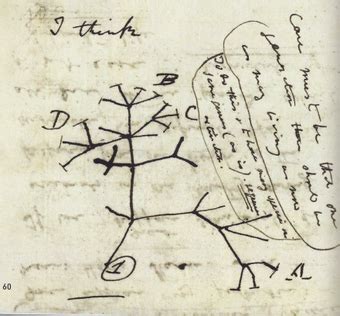 I think
Case must be that one
generation then should be
as many living as now
To do this & to have many species in
same genus (as is). requires
extinction.
B
D
C
A
1
60